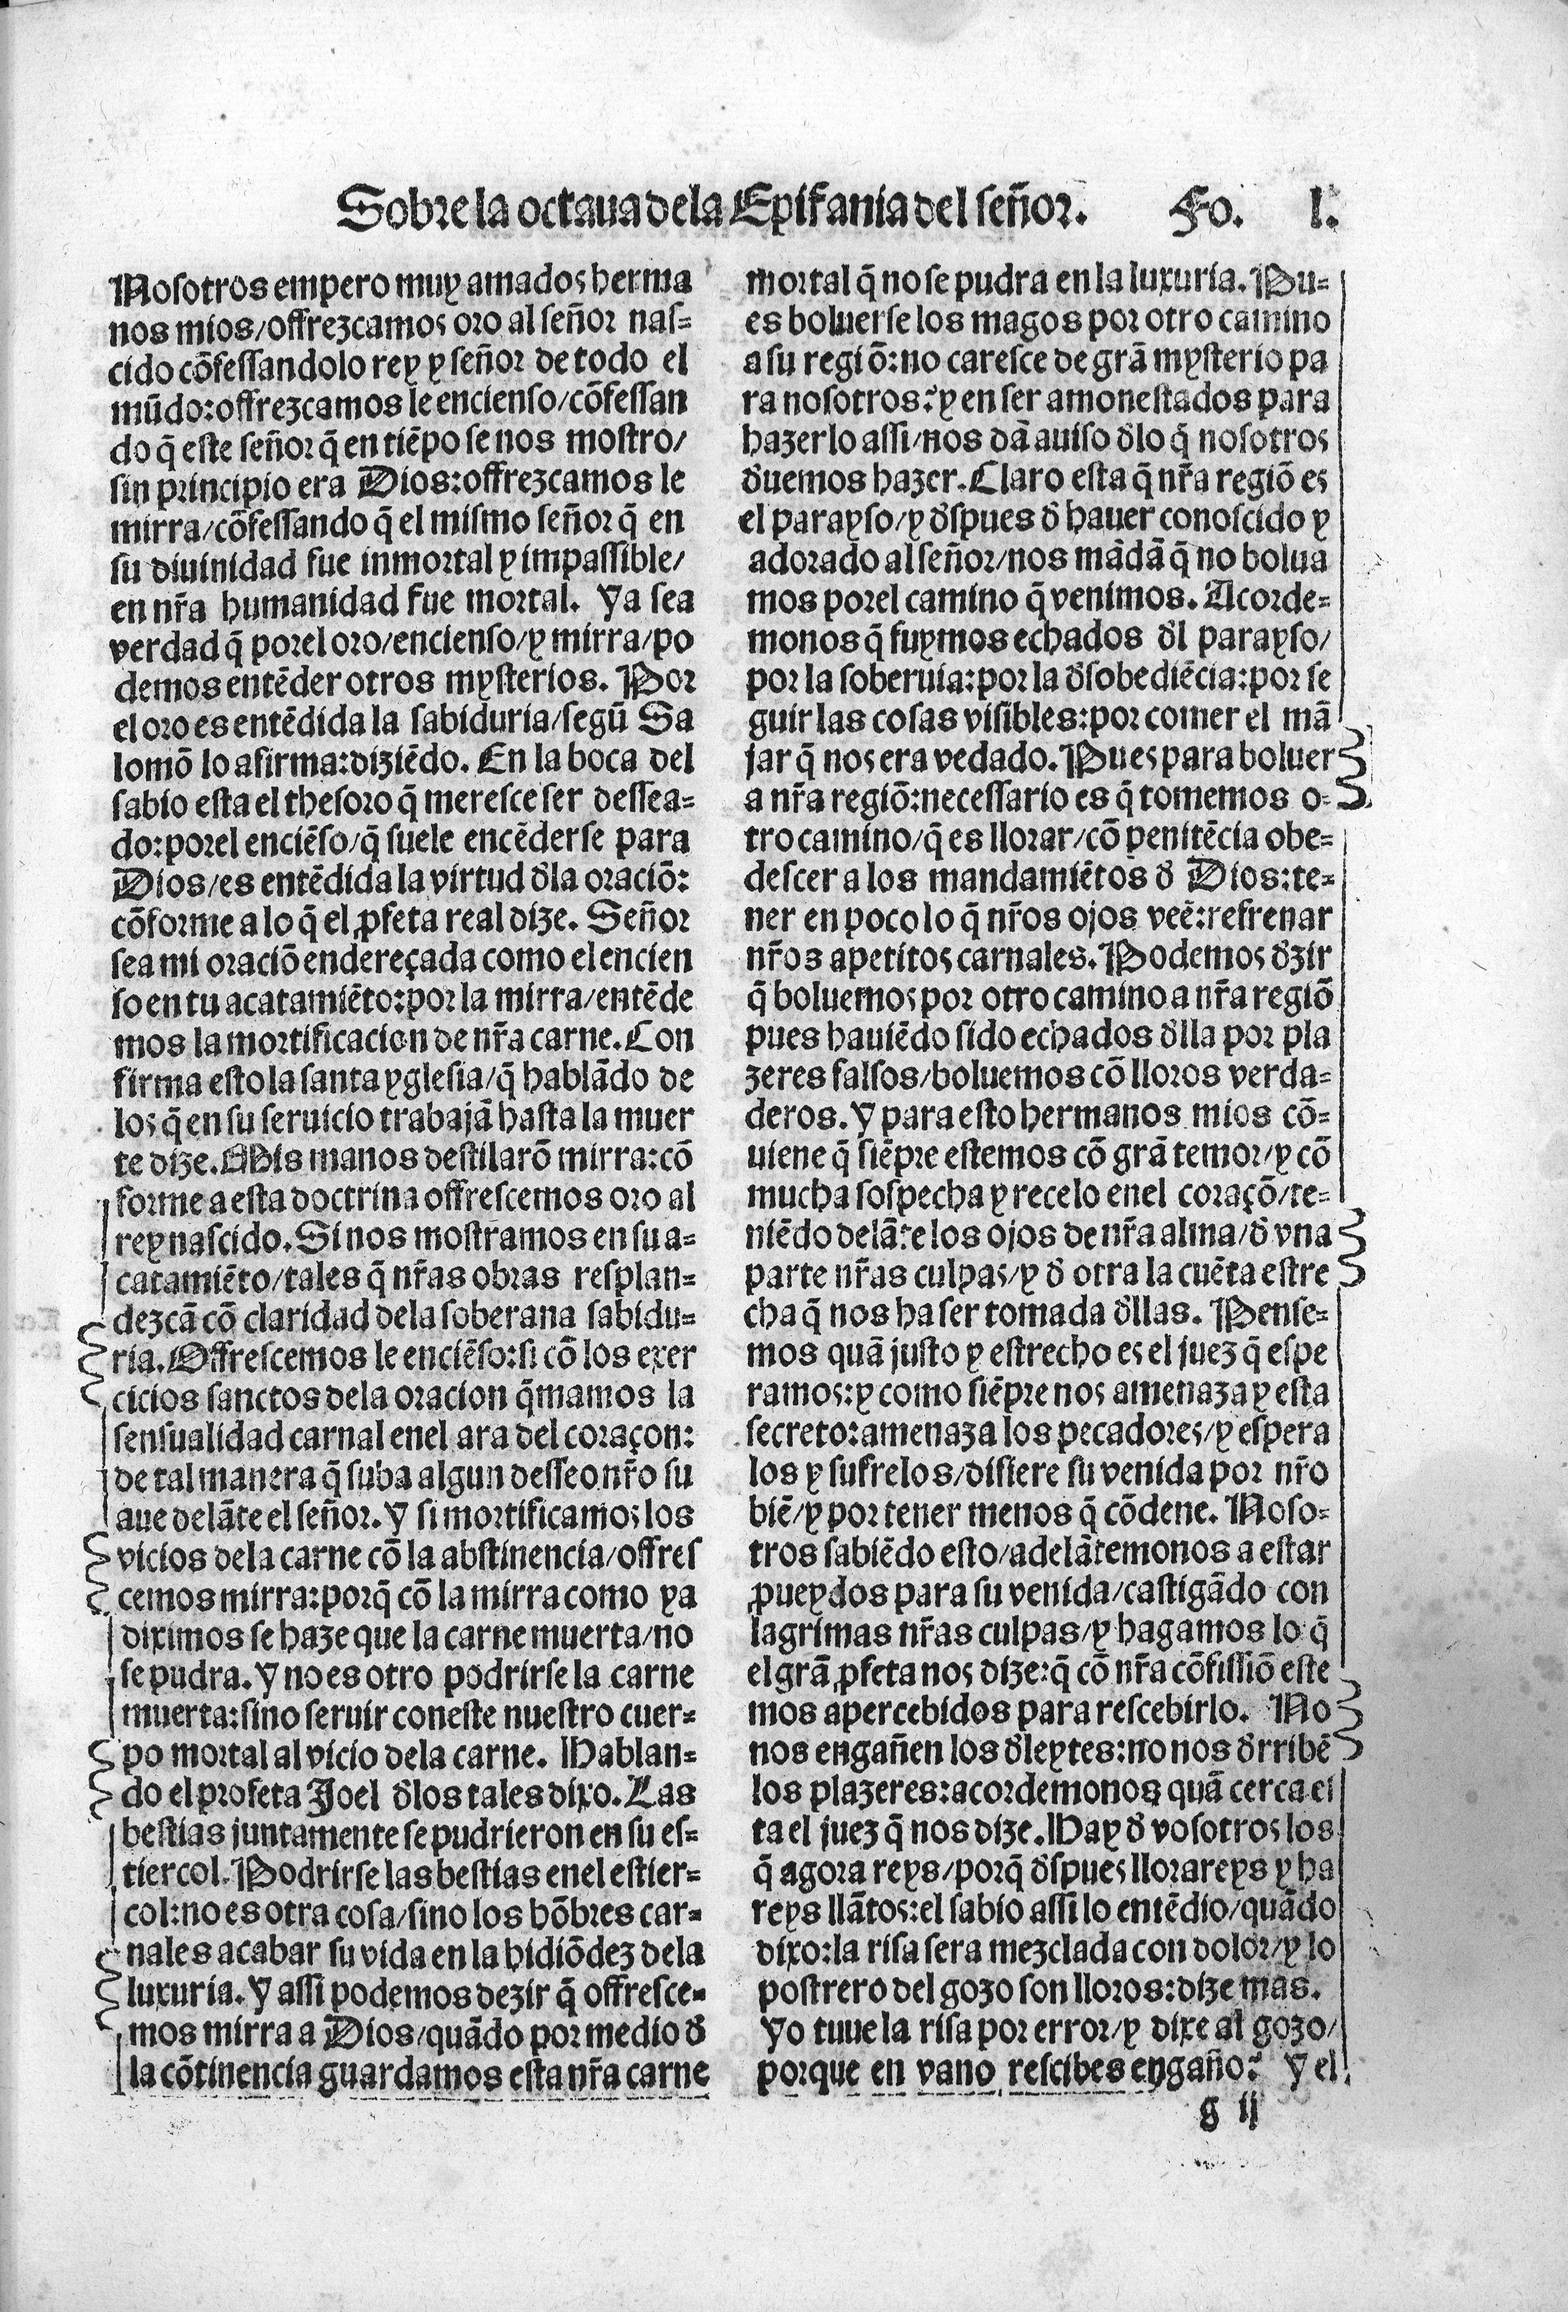 Sobre la octaua dela Epifania del señor. Fo. l.
Nosotros empero muy amados herma
nos mios/offrezcamos oro al señor nas=
cido cōfessandolo rey y señor de todo el
mūdo:offrezcamos le encienso/cōfessan
do q̄ este señor q̄ en tiēpo se nos mostro/
sin principio era Dios:offrezcamos le
mirra/cōfessando q̄ el mismo señor q̄ en
su diuinidad fue inmortal y impassible/
en nr̄a humanidad fue mortal. Ya sea
verdad q̄ porel oro/encienso/y mirra/po
demos entēder otros mysterios. Por
el oro es entēdida la sabiduria/segū Sa
lomō lo afirma:diziēdo. En la boca del
sabio esta el thesoro q̄ meresce ser dessea=
do:porel enciēso/q̄ suele encēderse para
Dios/es entēdida la virtud đla oraciō:
cōforme a lo q̄ el ꝓfeta real dize. Señor
sea mi oraciō endereçada como el encien
so en tu acatamiēto:por la mirra/entēde
mos la mortificacion de nr̄a carne. Con
firma esto la santa yglesia/q̄ hablādo de
los q̄ en su seruicio trabajā hasta la muer
te dize. Mis manos destilarō mirra:cō
forme a esta doctrina offrescemos oro al
rey nascido. Si nos mostramos en su a=
catamiēto/tales q̄ nr̄as obras resplan=
dezcā cō claridad dela soberana sabidu=
ria. Offrescemos le enciēso:si cō los exer
cicios sanctos dela oracion q̄mamos la
sensualidad carnal enel ara del coraçon:
de tal manera q̄ suba algun desseo nr̄o su
aue delāte el señor. Y si mortificamos los
vicios dela carne cō la abstinencia/offres
cemos mirra:porq̄ cō la mirra como ya
diximos se haze que la carne muerta/no
se pudra. Y no es otro podrirse la carne
muerta:sino seruir coneste nuestro cuer=
po mortal al vicio dela carne. Hablan=
do el profeta Joel đlos tales dixo. Las
bestias juntamente se pudrieron en su es=
tiercol. Podrirse las bestias enel estier=
col:no es otra cosa/sino los hōbres car=
nales acabar su vida en la hidiōdez dela
luxuria. Y assi podemos dezir q̄ offresce=
mos mirra a Dios/quādo por medio đ
la cōtinencia guardamos esta nr̄a carne
mortal q̄ no se pudra en la luxuria. Pu=
es boluerse los magos por otro camino
a su regiō:no caresce de grā mysterio pa
ra nosotros:y en ser amonestados para
hazerlo assi/nos dā auiso đlo q̄ nosotros
đuemos hazer. Claro esta q̄ nr̄a regiō es
el parayso/y đspues đ hauer conoscido y
adorado al señor/nos mādā q̄ no bolua
mos porel camino q̄ venimos. Acorde=
monos q̄ fuymos echados đl parayso/
por la soberuia:por la đsobediēcia:por se
guir las cosas visibles:por comer el mā
jar q̄ nos era vedado. Pues para boluer
a nr̄a regiō:necessario es q̄ tomemos o=
tro camino/q̄ es llorar/cō penitēcia obe=
descer a los mandamiētos đ Dios:te=
ner en poco lo q̄ nr̄os ojos veē:refrenar
nr̄os apetitos carnales. Podemos đzir
q̄ boluemos por otro camino a nr̄a regiō
pues hauiēdo sido echados đlla por pla
zeres falsos/boluemos cō lloros verda=
deros. Y para esto hermanos mios cō=
uiene q̄ siēpre estemos cō grā temor/y cō
mucha sospecha y recelo enel coraçō/te=
niēdo delāte los ojos de nr̄a alma/đ vna
parte nr̄as culpas/y đ otra la cuēta estre
cha q̄ nos ha ser tomada đllas. Pense=
mos quā justo y estrecho es el juez q̄ espe
ramos:y como siēpre nos amenaza y esta
secreto:amenaza los pecadores/y espera
los y sufrelos/difiere su venida por nr̄o
biē/y por tener menos q̄ cōdene. Noso=
tros sabiēdo esto/adelātemonos a estar
ꝓueydos para su venida/castigādo con
lagrimas nr̄as culpas/y hagamos lo q̄
el grā ꝓfeta nos dize:q̄ cō nr̄a cōfissiō este
mos apercebidos para rescebirlo. No
nos engañen los đleytes:no nos đrribē
los plazeres:acordemonos quā cerca es
ta el juez q̄ nos dize. Hay đ vosotros los
q̄ agora reys/porq̄ đspues llorareys y ha
reys llātos:el sabio assi lo entēdio/quādo
dixo:la risa sera mezclada con dolor/y lo
postrero del gozo son lloros:dize mas.
Yo tuue la risa por error/y dixe al gozo/
porque en vano rescibes engaño? Y el
g ij